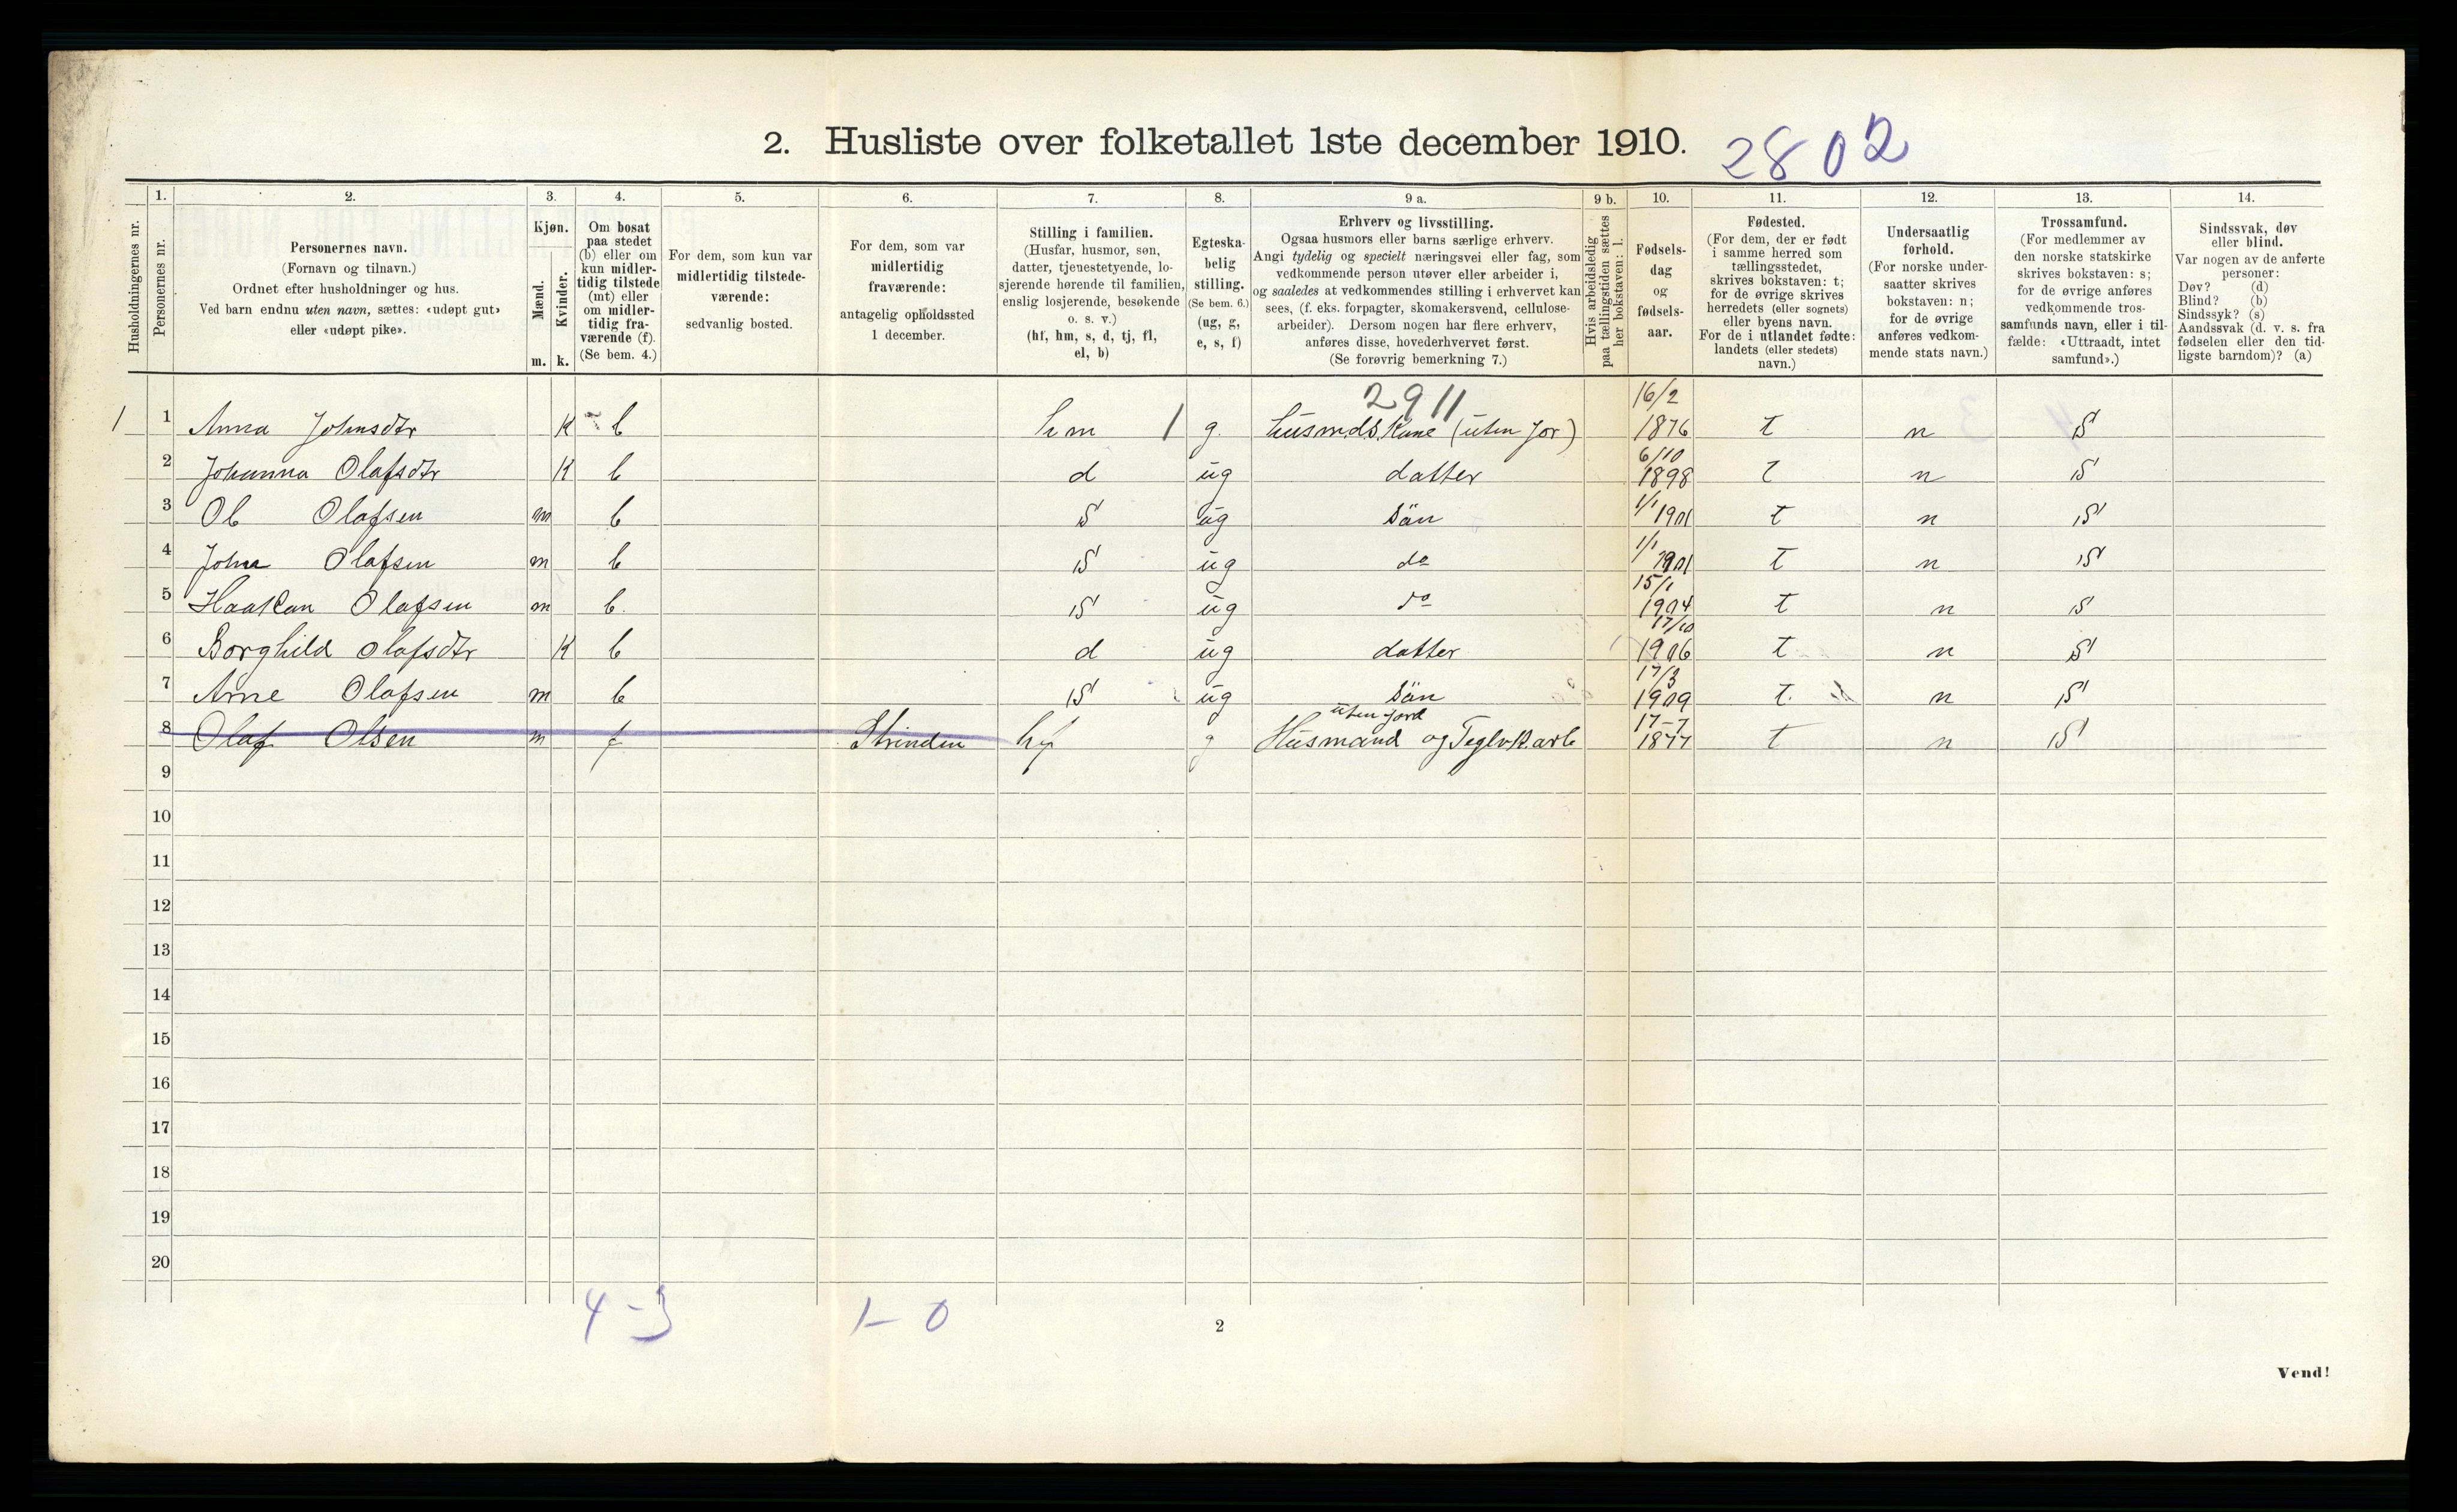 2. Husliste over folketallet 1ste december 1910. 2802
Husholdningernes nr.
1.
Personernes nr.
2.
Personernes navn.
(Fornavn og tilnavn.)
Ordnet efter husholdninger og hus.
Ved barn endnu uten navn, sættes: «udøpt gut»
eller «udøpt pike».
3.
Kjøn.
Mænd.
m.
Kvinder.
k.
4.
Om bosat
paa stedet
(b) eller om
kun midler-
tidig tilstede
(mt) eller
om midler-
tidig fra-
værende (f).
(Se bem. 4.)
5.
For dem, som kun var
midlertidig tilstede-
værende:
sedvanlig bosted.
6.
For dem, som var
midlertidig
fraværende:
antagelig opholdssted
1 december.
7.
Stilling i familien.
(Husfar, husmor, søn,
datter, tjenestetyende, lo-
sjerende hørende til familien,
enslig losjerende, besøkende
o. s. v.)
(hf, hm, s, d, tj, fl,
el, b)
8.
Egteska-
belig
stilling.
(Se bem. 6.)
(ug, g,
e, s, f)
9 a.
Erhverv og livsstilling.
Ogsaa husmors eller barns særlige erhverv.
Angi tydelig og specielt næringsvei eller fag, som
vedkommende person utøver eller arbeider i,
og saaledes at vedkommendes stilling i erhvervet kan
sees, (f. eks. forpagter, skomakersvend, cellulose-
arbeider). Dersom nogen har flere erhverv,
anføres disse, hovederhvervet først.
(Se forøvrig bemerkning 7.)
9 b.
Hvis arbeidsledig
paa tællingstiden sættes
her bokstaven: l.
10.
Fødsels-
dag
og
fødsels-
aar.
11.
Fødested.
(For dem, der er født
i samme herred som
tællingsstedet,
skrives bokstaven: t;
for de øvrige skrives
herredets (eller sognets)
eller byens navn.
For de i utlandet fødte:
landets (eller stedets)
navn.)
12.
Undersaatlig
forhold.
(For norske under-
saatter skrives
bokstaven: n;
for de øvrige
anføres vedkom-
mende stats navn.)
13.
Trossamfund.
(For medlemmer av
den norske statskirke
skrives bokstaven: s;
for de øvrige anføres
vedkommende tros-
samfunds navn, eller i til-
fælde: «Uttraadt, intet
samfund».)
14.
Sindssvak, døv
eller blind.
Var nogen av de anførte
personer:
Døv? (d)
Blind? (b)
Sindssyk? (s)
Aandssvak (d. v. s. fra
fødselen eller den tid-
ligste barndom)? (a)
2911
1 1 Anna Johnsdtr K b hm 1 g. Husmds Kone (uten Jor) 16/2 1876 t n S
2 Johanna Olafsdtr K b d ug datter 6/10 1898 t n S
3 Ol Olafsen m b S ug Sön 1/1 1901 t n S
4 John Olafsen m b S ug do 1/1 1901 t n S
5 Haakon Olafsen m b. S ug do 15/1 1904 t n S
6 Borghild Olafsdtr K b d ug datter 17/10 1906 t n S
7 Arne Olafsen m b S ug Sön 17/3 1909 t. n S
uten jord
8 Olaf Olsen m f Strinden hf g Husmand og Teglvk.arb 17-7 1877 t n S
9
10
11
12
13
14
15
16
17
18
19
20
4-3 1-0
2
Vend!